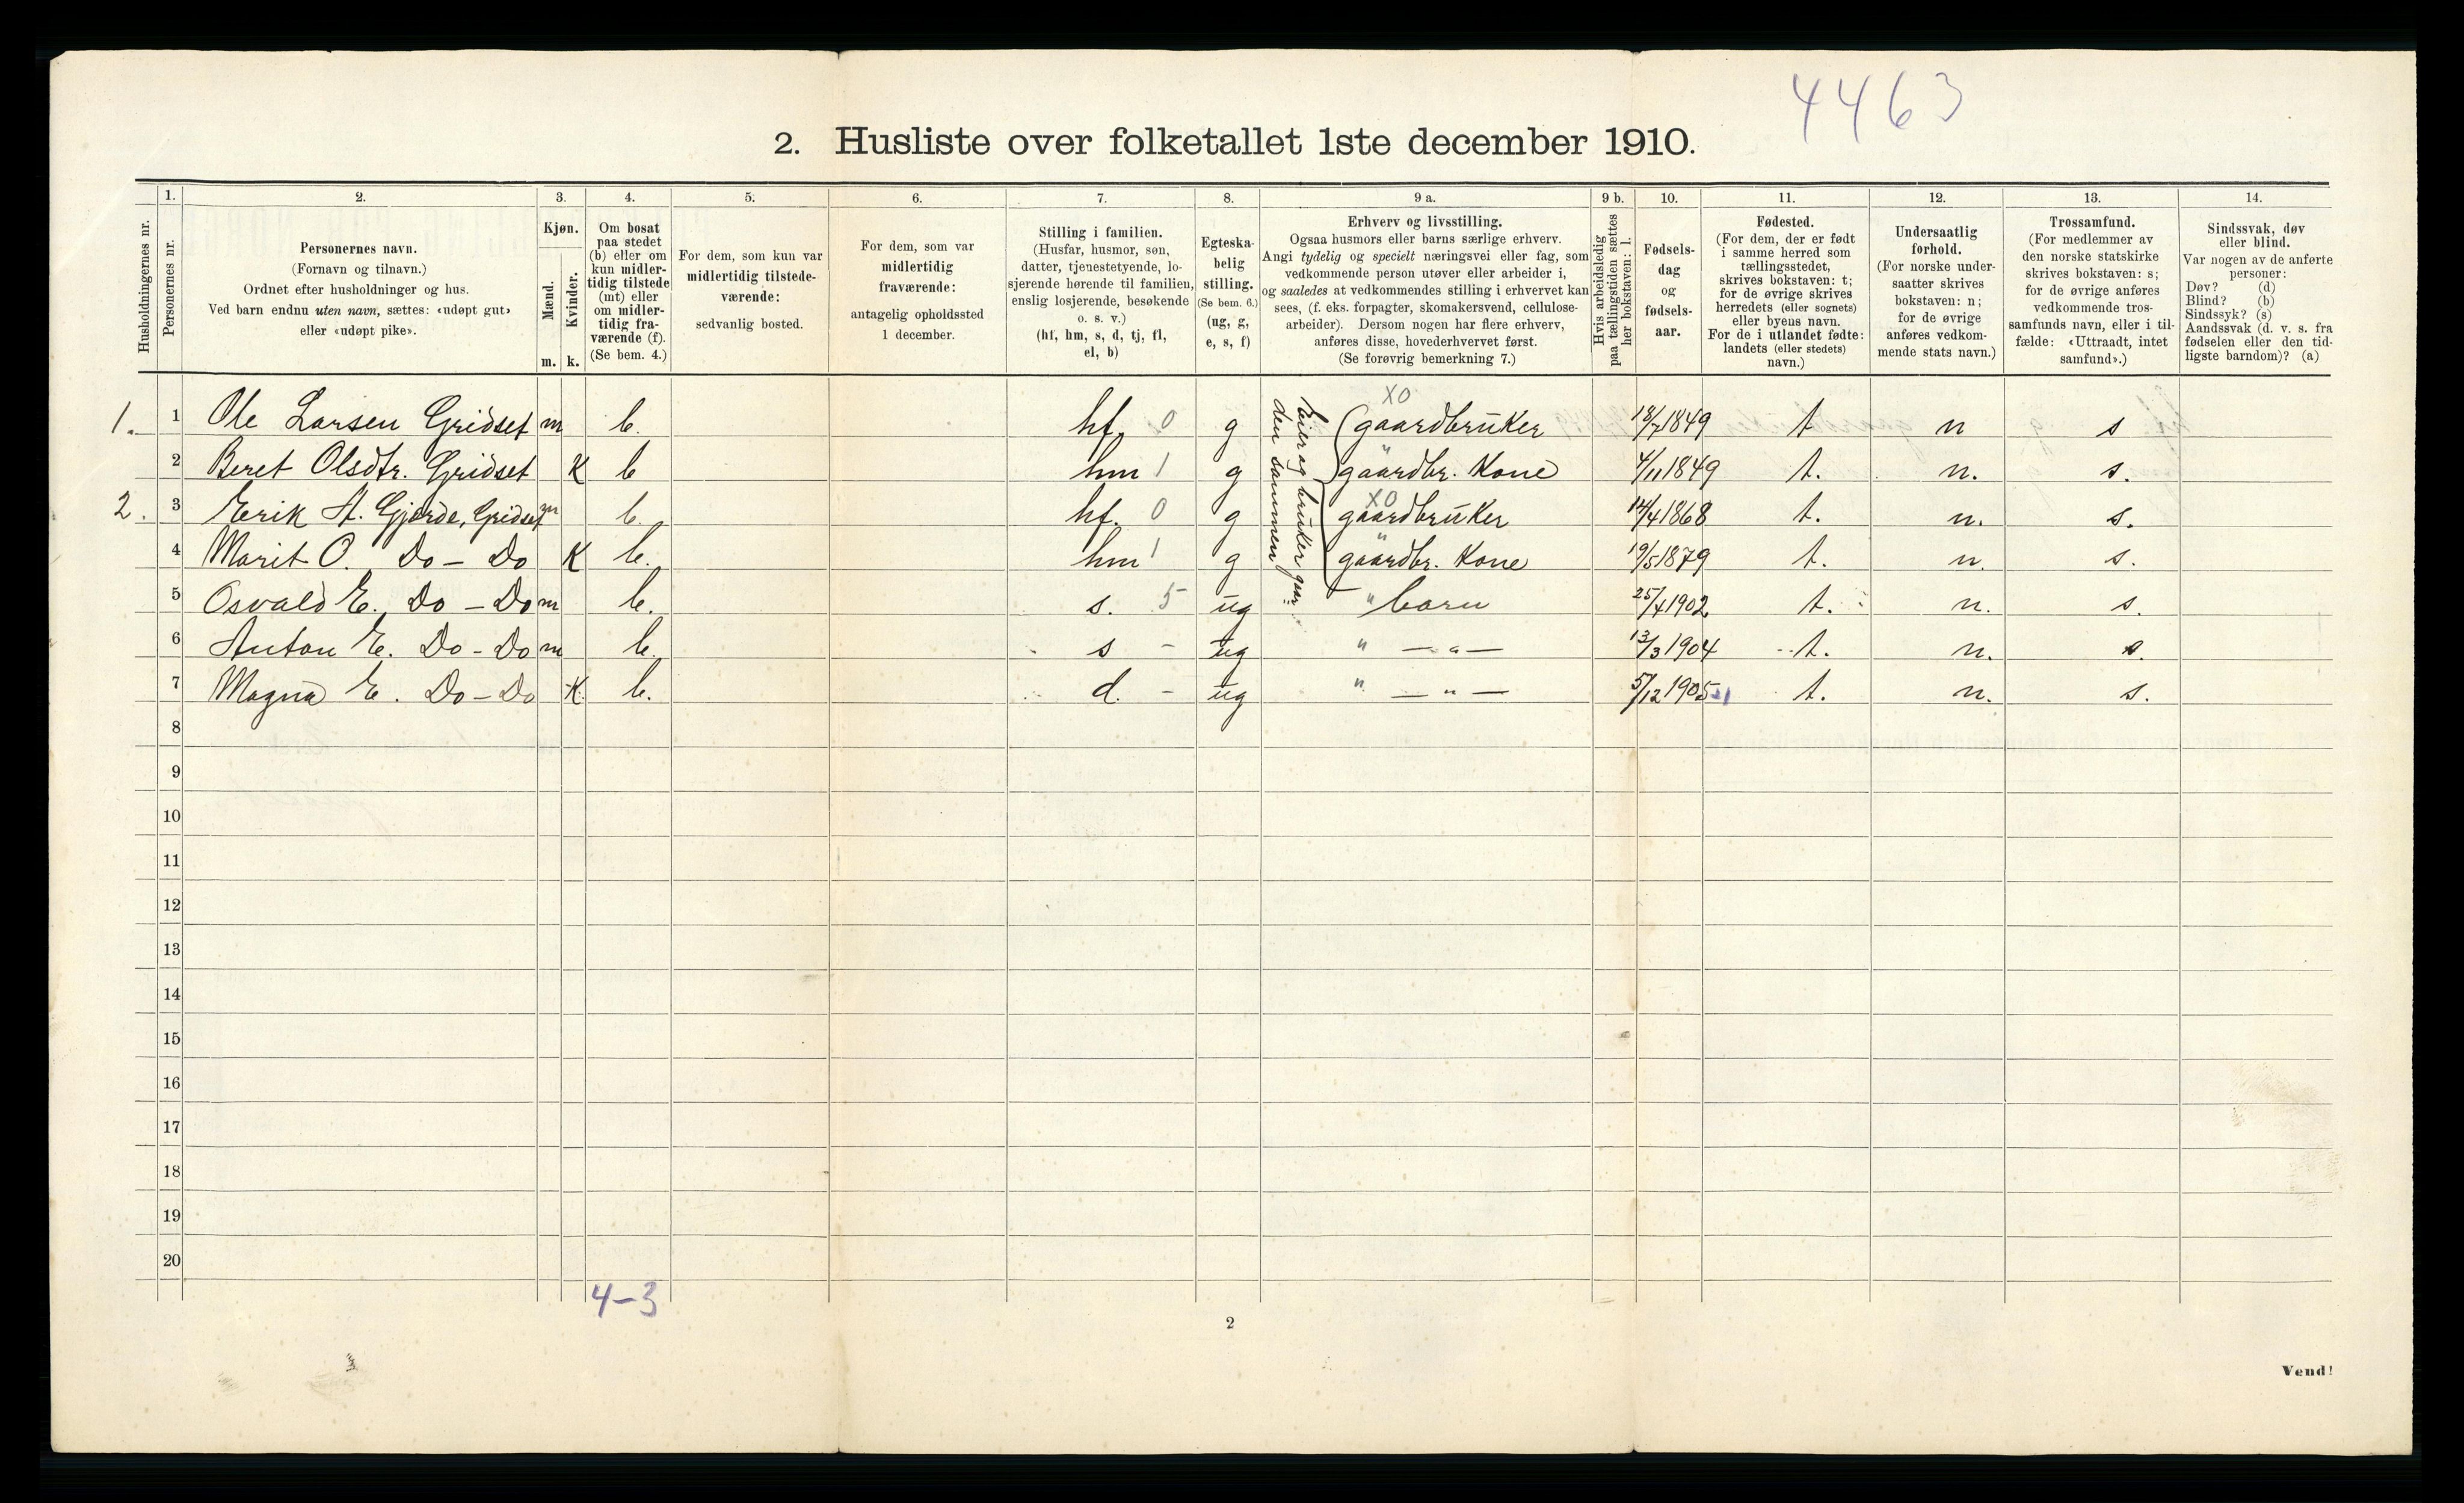 4463
2. Husliste over folketallet 1ste december 1910.
Husholdningernes nr.
1.
Personernes nr.
2.
Personernes navn.
(Fornavn og tilnavn.)
Ordnet efter husholdninger og hus.
Ved barn endnu uten navn, sættes: «udøpt gut»
eller «udøpt pike».
3.
Kjøn.
Mænd.
Kvinder.
m. k.
4.
Om bosat
paa stedet
(b) eller om
kun midler-
tidig tilstede
(mt) eller
om midler-
tidig fra-
værende (f).
(Se bem. 4.)
5.
For dem, som kun var
midlertidig tilstede-
værende:
sedvanlig bosted.
6.
For dem, som var
midlertidig
fraværende:
antagelig opholdssted
1 december.
7.
Stilling i familien.
(Husfar, husmor, søn,
datter, tjenestetyende, lo-
sjerende hørende til familien,
enslig losjerende, besøkende
o. s. v.)
(hf, hm, s, d, tj, fl,
el, b)
8.
Egteska-
belig
stilling.
(Se bem. 6.)
(ug, g,
e, s, f)
9 a.
Erhverv og livsstilling.
Ogsaa husmors eller barns særlige erhverv.
Angi tydelig og specielt næringsvei eller fag, som
vedkommende person utøver eller arbeider i,
og saaledes at vedkommendes stilling i erhvervet kan
sees, (f. eks. forpagter, skomakersvend, cellulose-
arbeider). Dersom nogen har flere erhverv,
anføres disse, hovederhvervet først.
(Se forøvrig bemerkning 7.)
9 b.
Hvis arbeidsledig
paa tællingstiden sættes
her bokstaven: l.
10.
Fødsels-
dag
og
fødsels-
aar.
11.
Fødested.
(For dem, der er født
i samme herred som
tællingsstedet,
skrives bokstaven: t;
for de øvrige skrives
herredets (eller sognets)
eller byens navn.
For de i utlandet fødte:
landets (eller stedets)
navn.)
12.
Undersaatlig
forhold.
(For norske under-
saatter skrives
bokstaven: n;
for de øvrige
anføres vedkom-
mende stats navn.)
13.
Trossamfund.
(For medlemmer av
den norske statskirke
skrives bokstaven: s;
for de øvrige anføres
vedkommende tros-
samfunds navn, eller i til-
fælde: «Uttraadt, intet
samfund».)
14.
Sindssvak, døv
eller blind.
Var nogen av de anførte
personer:
Døv? (d)
Blind? (b)
Sindssyk? (s)
Aandssvak (d. v. s. fra
fødselen eller den tid-
ligste barndom)? (a)
Eier og bruker gaar-
den sammen
XO
1. 1 Ole Larsen Gridset m b. hf. 0 g gaardbruker 18/7 1849 t n s
2 Beret Olsdtr. Gridset K b hm 1 g gaardbr. Kone 4/11 1849 t. n. s.
XO
2. 3 Erik A. Gjerde, Gridset m b. hf. 0 g gaardbruker 14/4 1868 t. n. s.
4 Marit O. Do - Do K b. hm 1 g " gaardbr. Kone 19/5 1879 t. n. s.
5 Osvald E. Do - Do m b. s. 5 ug " barn 25/4 1902 t. n. s.
6 Anton E. Do - Do m b. s - ug " — " — 13/3 1904 t. n. s.
7 Magna E. Do - Do K. b. d. - ug " — " — 5/12 1905 t. n. s.
8
9
10
11
12
13
14
15
16
17
18
19
20
4-3
2
Vend!